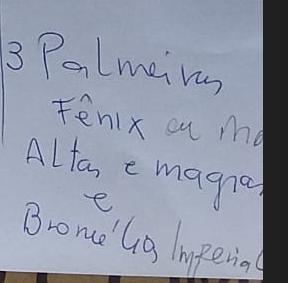 3 Palmeiras
Fênix ou
Altas e magras
e
Bromélias Imperial